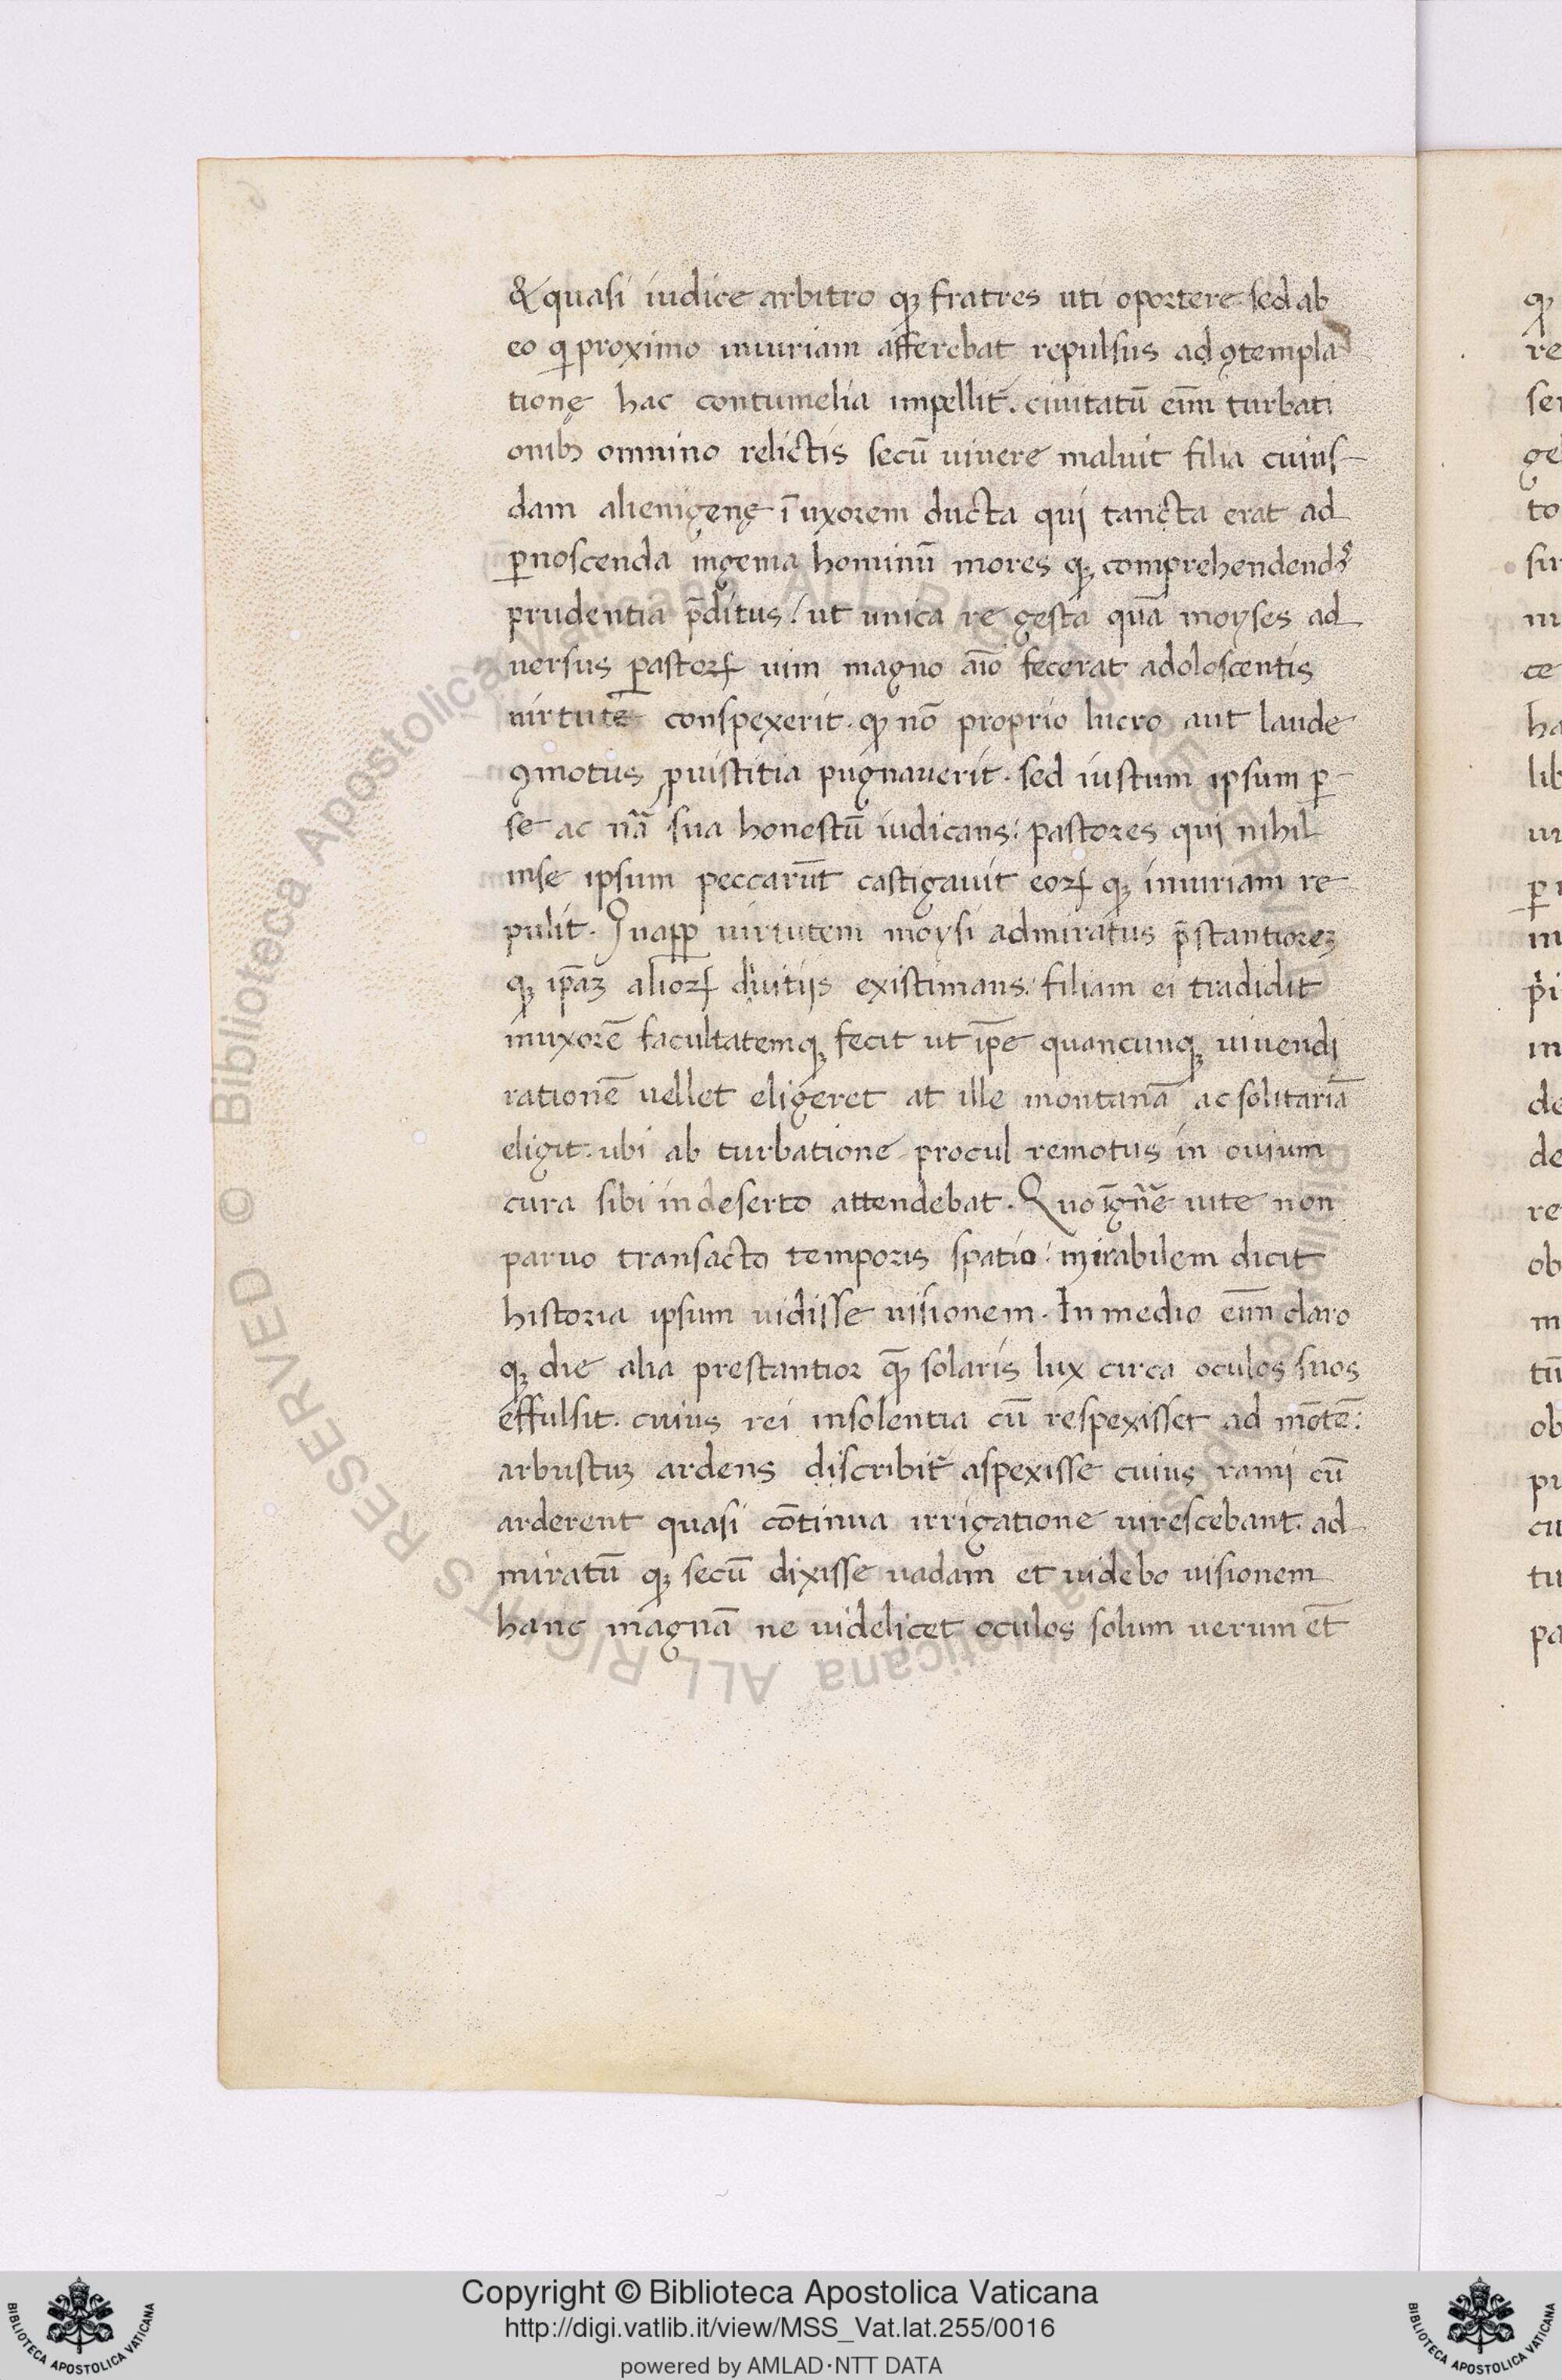 & quasi iudice arbitro qꝫ fratres uti oportere sed ab
eo q proximo iniuriam afferebat repulsus ad ꝯtempla
tionę hac contumelia impellit. ciuitatū eīm turbati
onibꝫ omnino relictis secū uiuere maluit filia cuius-
dam alienigenę ī uxorem ducta qui tancta erat ad
ꝑnoscenda ingenia hominū mores qꝫ comprehendendꝰ
prudentia p̄ditus: ut unica re gesta quā moyses ad
uersus pastorꝝ uim magno aīo fecerat adoloscentis
uirtutē conspexerit. qꝫ nō proprio lucro aut laude
ꝯmotus ꝓ iustitia pugnauerit. sed iustum ipsum ꝑ-
se ac nr̄ā sua honestū iudicans: pastores qui nihil
inse ipsum peccarūt castigauit eorꝝ qꝫ iniuriam re
pulit. Quaꝓꝑ uirtutem moysi admiratus p̄stantiorēꝫ
qꝫ ip̄aꝫ aliorꝝ diuitijs existimans: filiam ei tradidit
inuxorē facultatemqꝫ fecit ut ip̄e quancunqꝫ uiuendi
rationē uellet eligeret at ille montanā ac solitariā
eligit. ubi ab turbatione procul remotus in ouium
cura sibi indeserto attendebat. Quo īgn̄e uite non
paruo transacto temporis spatio: mirabilem dicit
historia ipsum uidisse uisionem. In medio eīm claro
qꝫ die alia prestantior qꝫ̄ solaris lux circa oculos suos
effulsit. cuius rei insolentia cū respexisset ad mōtē:
arbustuꝫ ardens discribit̄ aspexisse cuius rami cū
arderent quasi cōtinua irrigatione uirescebant. ad
miratū qꝫ secū dixisse uadam et uidebo uisionem
hanc magnā ne uidelicet oculos solum uerum et̄
Copyright © Biblioteca Apostolica Vaticana
http://digi.vatlib.it/view/MSS_Vat.lat.255/0016
powered by AMLAD·NTT DATA